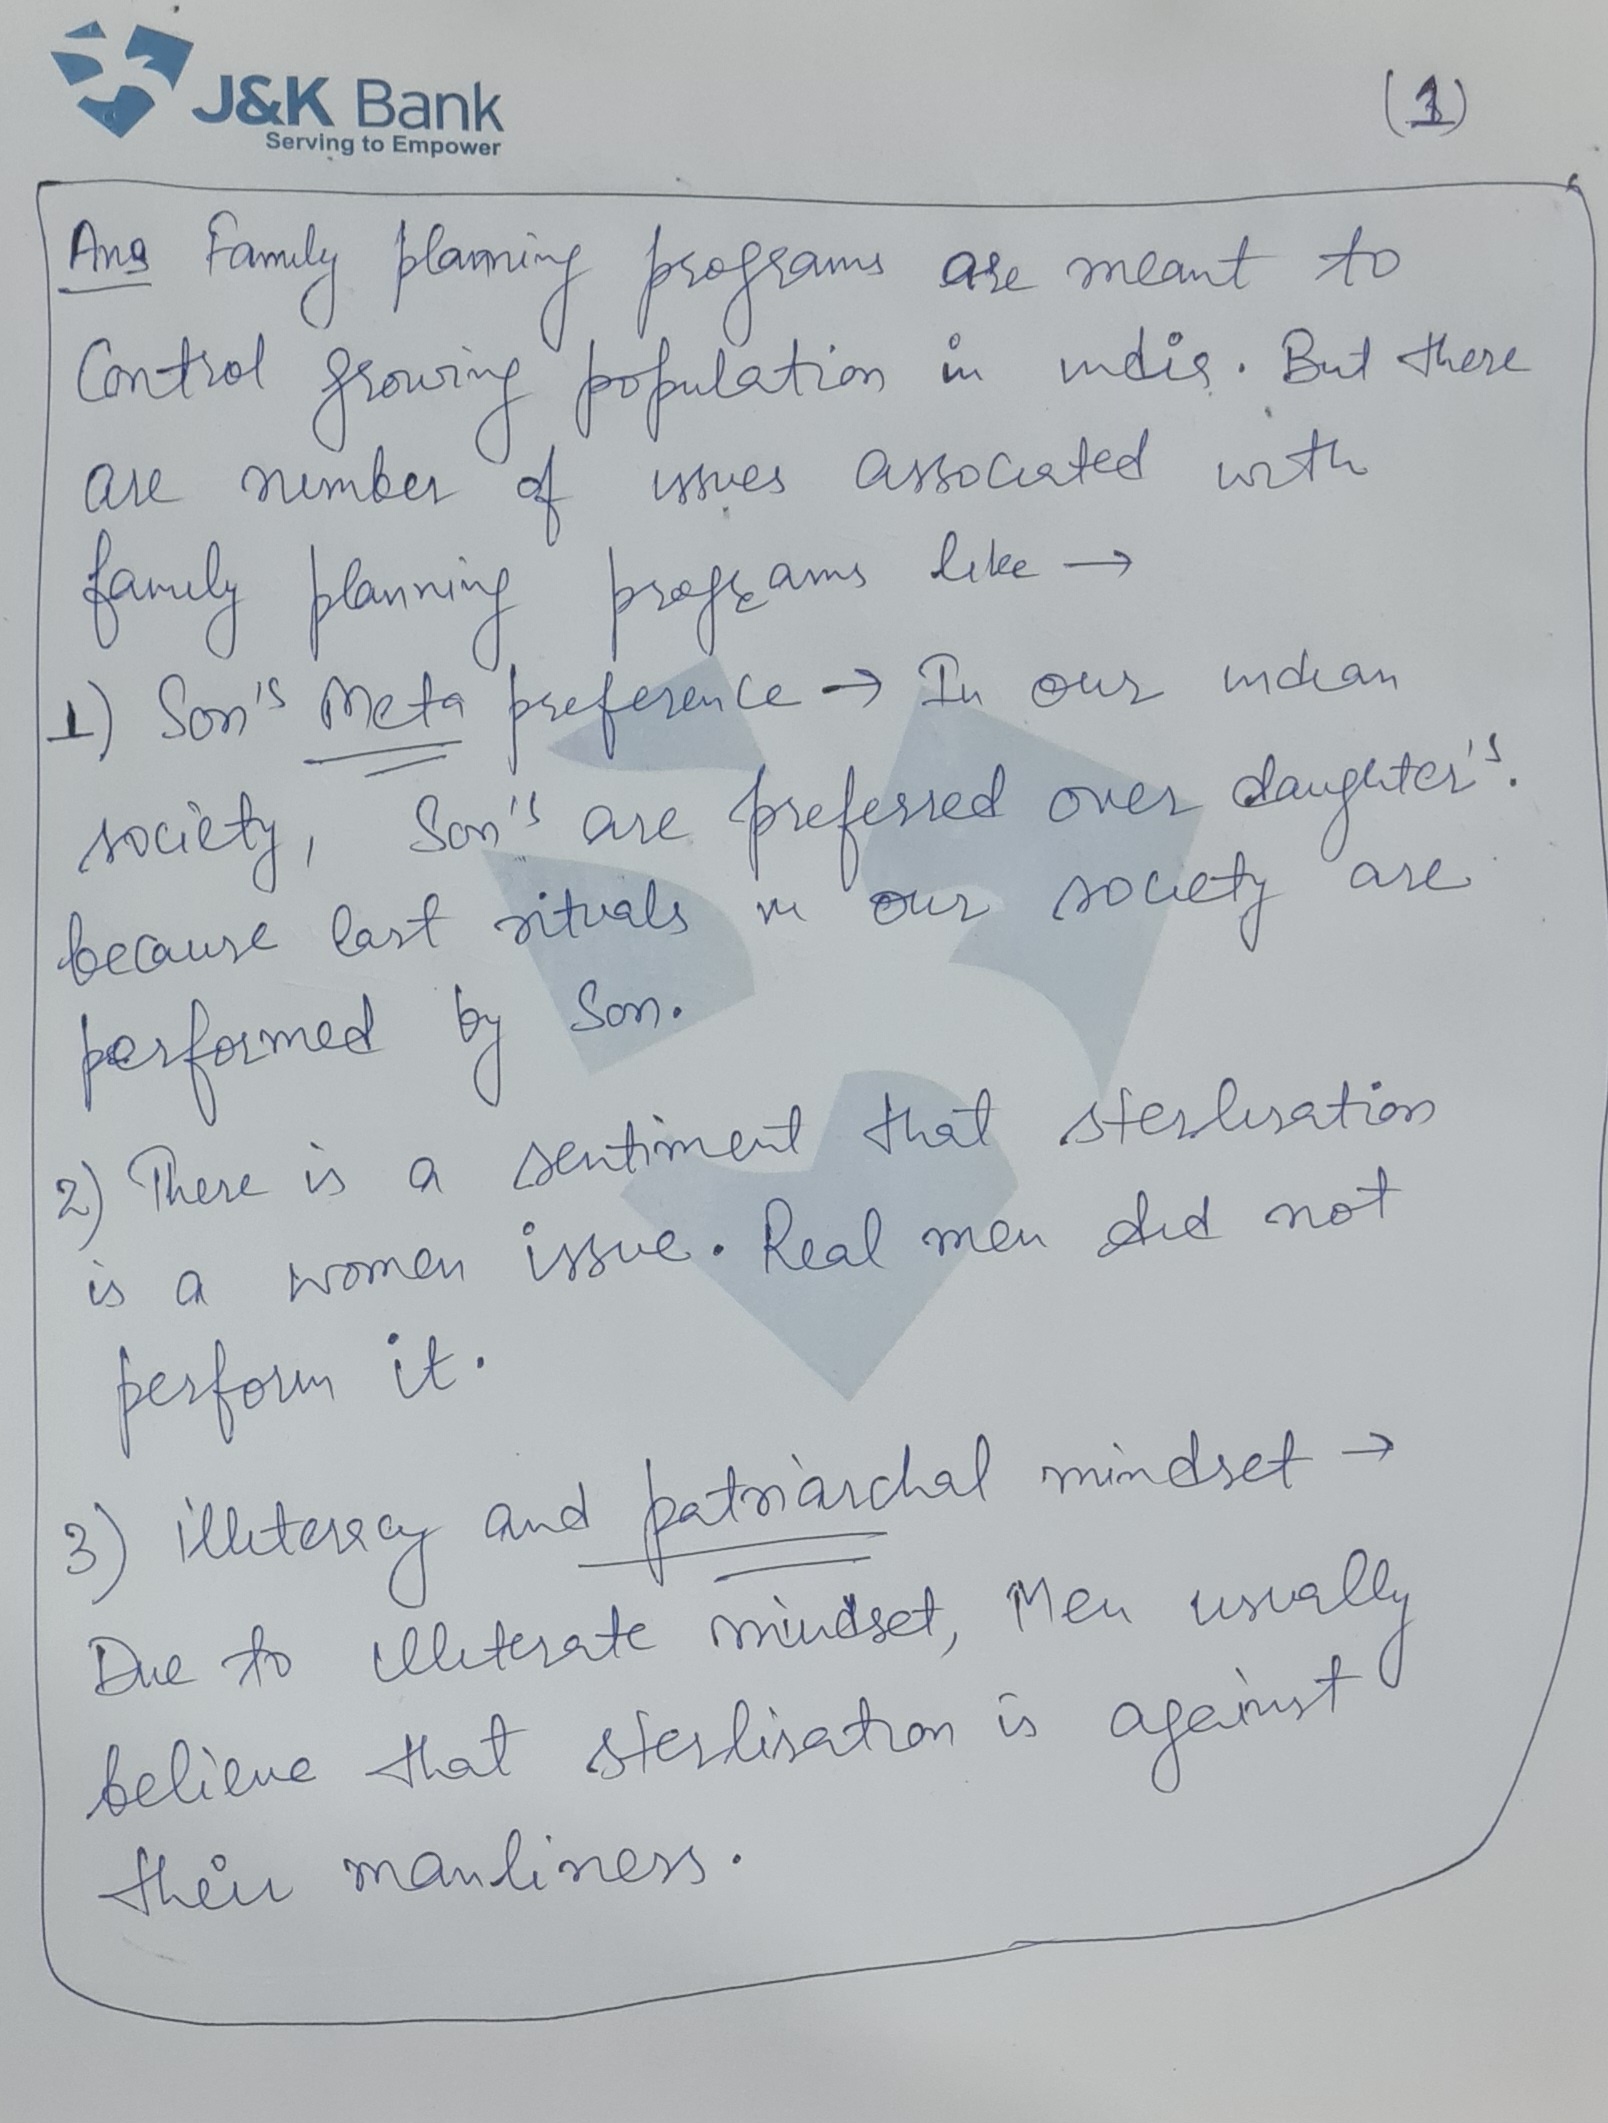 J&K Bank
Serving to Empower
(1)
Ans Family planning programs are meant to
Control growing population in india. But there
are number of issues associated with
family planning programs like →
1) Son's Meta preference → In our indian
society, Son's are preferred over daughter's.
because last rituals in our society are
performed by Son.
2) There is a sentiment that sterlisation
is a women issue. Real men did not
perform it.
3) illiteracy and patriarchal mindset →
Due to illiterate mindset, Men usually
believe that sterlisation is against
their manliness.